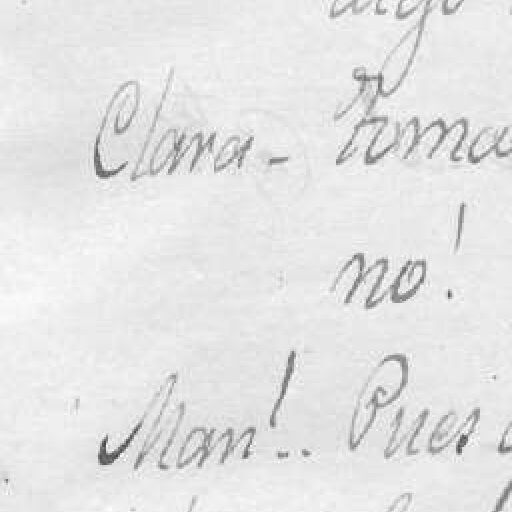 Clara - Toma
no!
Man!.. Pues